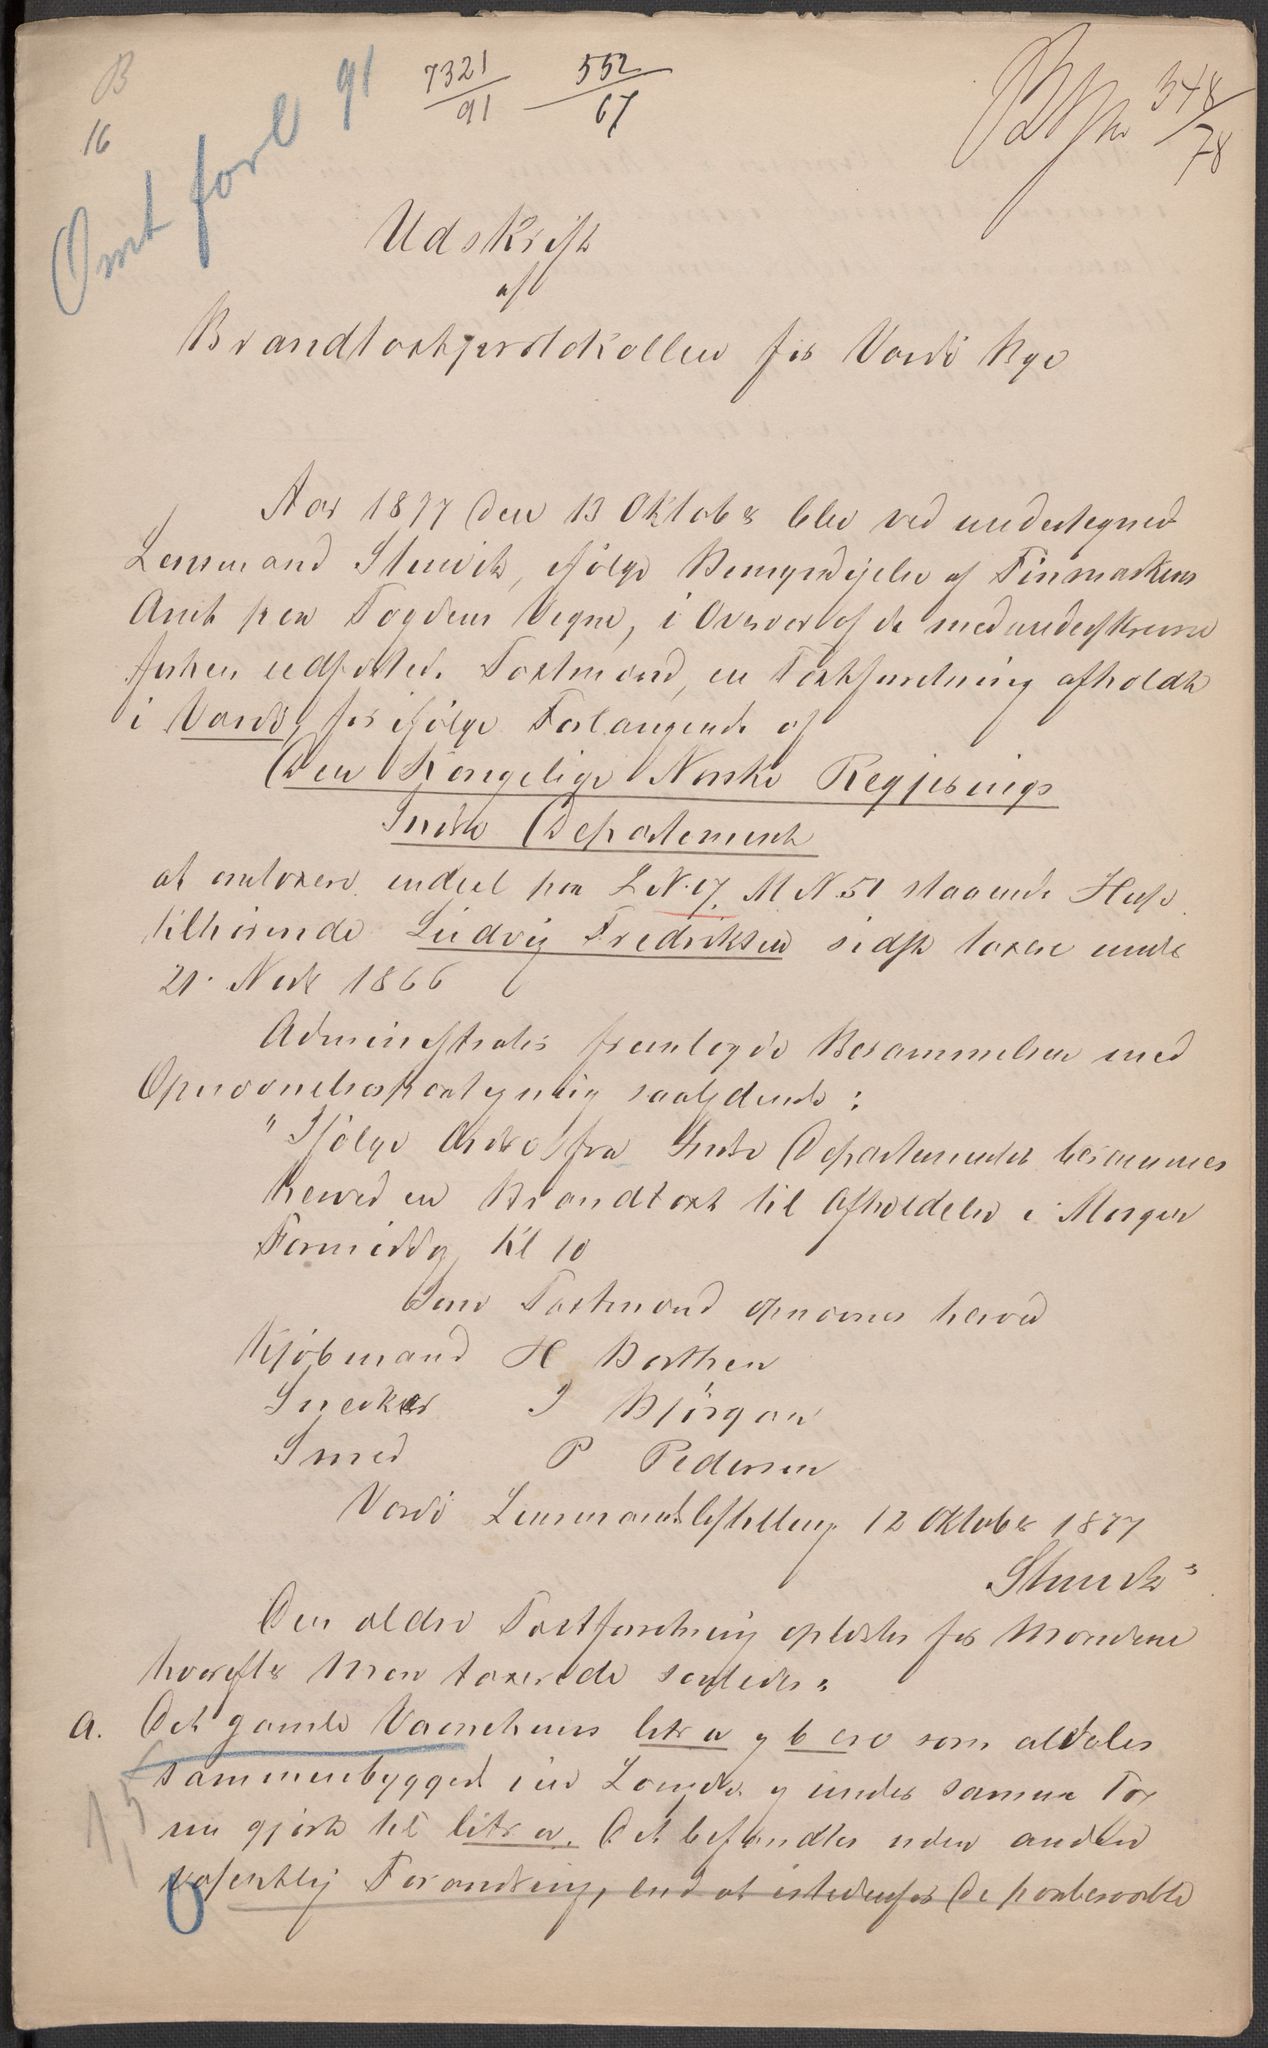 B
16
Omt forl 91
7321/91
552/67
Bf No 548/78
Udskrift
af
Brandtaxtprotokollen for Vardö Bye
Aar 1877 den 13 Oktober blev ved undertegnede
Lensmand Stenvik, ifölge Bemyndigelse af Finmarkens
Amt paa Fogdens Vegne, i Overvær af de medunderskrevne
udförted. Taxtmænd, en Taxtforretning afholdt
i Vardö, for ifölge Forlangende af
Den Kongelige Norske Regjerings
Indre Departement
at omtaxere endeel paa L N. 17. M N. 51 staaende Huse
tilhörende Ludvig Fredriksen sidst taxeret under
21. Novbr 1866
Administrator fremlagde Berammelsen med
Opnævnelsespaategning saalydende:
"Ifölge Ordre fra Indre Departementet berammes
herved en Brandtaxt til Afholdelse i Morgen
Formiddag Kl 10
Som Taxtmænd opnævnes herved
Kjöbmand H Barthen
Snedker J Bjørgan
Smed P Pedersen
Vardö Lensmandsbestilling 12 Oktober 1877
Stenvik"
Den ældre Taxtforretning oplæstes for Mændene
hvorefter Man taxerede saaledes:
a. Det gamle Vaanehuus litr a og b ere som aldeles
sammenbygged i en Længde og under samme Tag
nu gjort til litr a. Det befandtes uden anden
væsentlig Forandring, end at istedenfor De paaberaabte
1,5